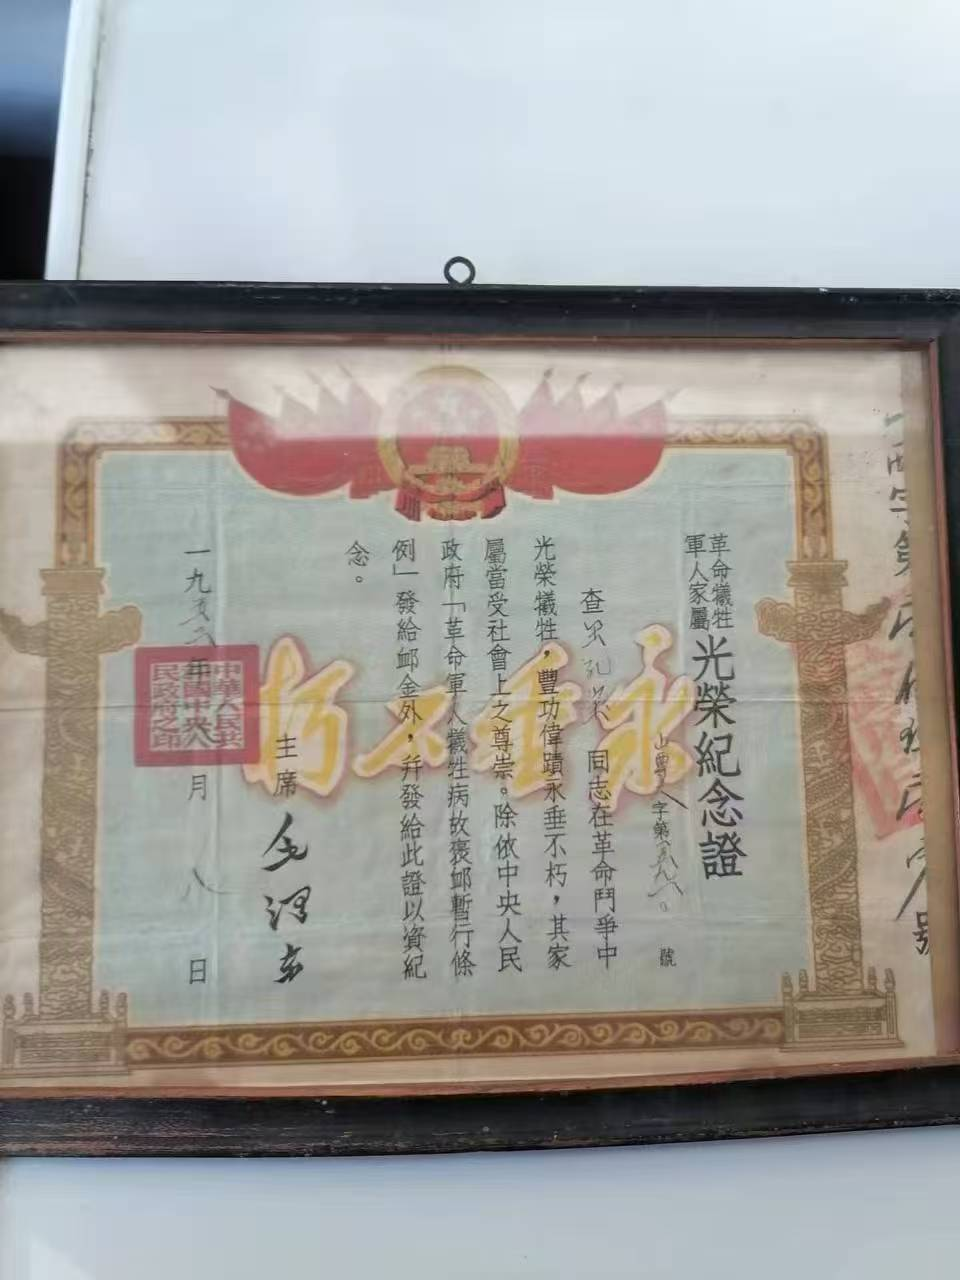 革命犧牲
軍人家屬
光榮紀念證
字第
號
查
同志在革命鬥爭中
光榮犧牲，豐功偉蹟永垂不朽，其家
屬當受社會上之尊崇。除依中央人民
政府「革命軍人犧牲病故褒卹暫行條
例」發給卹金外，幷發給此證以資紀
念。
主席 毛澤東
一九五 年 月八日
永垂不朽
中華人民共
和國中央人
民政府之印
字第
號